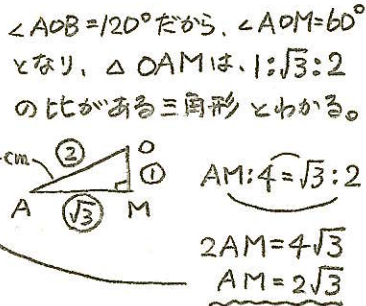 ∠AOB=120°だから、∠AOM=60°
となり、△OAMは、1:√3:2
の比がある三角形とわかる。
cm ② O
① AM:4=√3:2
A √3 M
2AM=4√3
AM=2√3